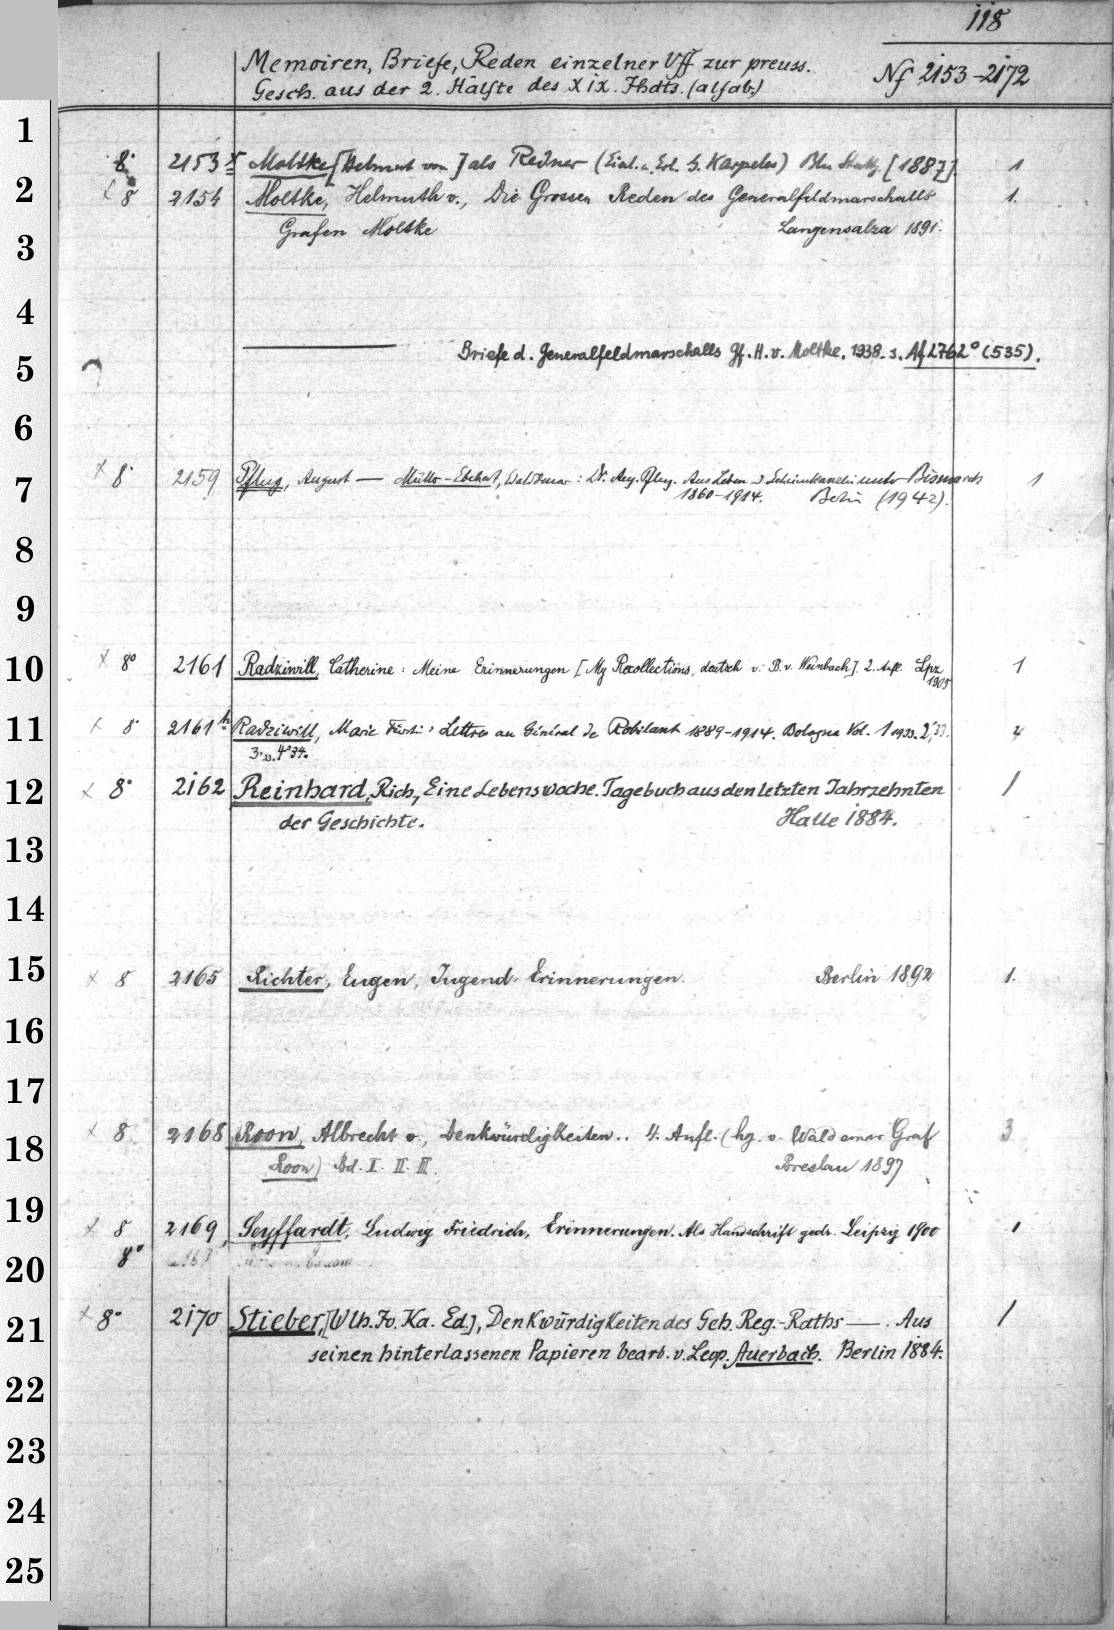 118
Memoiren, Briefe, Reden einzelner Vff zur preuss. Nf 2153-2172
Gesch. aus der 2. Hälfte des XIX. Jhdts. (alfab.)
1
8° 2153 Moltke [Helmut von] als Redner (Einl. u. Erl. G. Karpeles) Bln Stuttg. [1887] 1
2
8 2154 Moltke, Helmuth v., Die Grossen Reden des Generalfeldmarschalls 1.
Grafen Moltke Langensalza 1891.
3
4
Briefe d. Generalfeldmarschalls Gf. H. v. Moltke. 1938 s. Af 2762° (535).
5
6
7
x 8° 2159 Pflug, August — Müller-Eberhart, Waldemar: Dr. Aug. Pflug. Aus Leben unter Bismarck 1
1860-1914. Berlin (1942).
8
9
10
x 8° 2161 Radziwill, Catherine: Meine Erinnerungen [My Recollections, deutsch v. B. v. Weinbach]. 2. Aufl. Lpz 1905 1
11
x 8° 2161h Radziwill, Marie Fürstin: Lettres au Général de Robilant 1889-1914. Bologna Vol. 1 1933. 2,33. 4
3,33. 4,34.
12
x 8° 2162 Reinhard, Rich., Eine Lebenswoche. Tagebuch aus den letzten Jahrzehnten 1
der Geschichte. Halle 1884.
13
14
15
x 8 2165 Richter, Eugen, Jugend-Erinnerungen. Berlin 1892 1.
16
17
18
x 8 2168 Roon, Albrecht v., Denkwürdigkeiten.. 4. Aufl. (hg. v. Waldemar Graf 3
Roon) Bd. I. II. III. Breslau 1897
19
x 8 2169, Seyffardt, Ludwig Friedrich, Erinnerungen. Als Handschrift gedr. Leipzig 1900 1
20
8°
21
x 8° 2170 Stieber, [Wlh. Fo. Ka. Ed.], Denkwürdigkeiten des Geh. Reg.-Raths —. Aus 1
seinen hinterlassenen Papieren bearb. v. Leop. Auerbach. Berlin 1884.
22
23
24
25